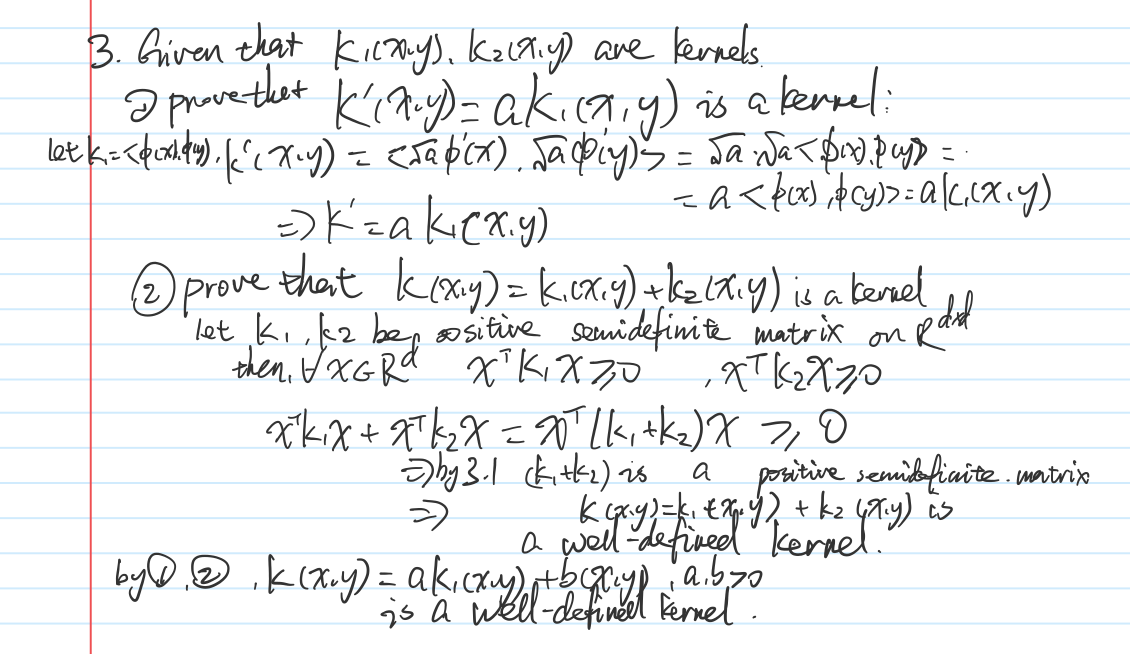 3. Given that K₁(x,y), K₂(x,y) are kernels.
① prove that K'(x,y) = aK₁(x,y) is a kernel:
let k₁=<ϕ(x),ϕ(y)>, K'(x,y) = <√aϕ'(x), √aϕ'(y)> = √a·√a<ϕ(x),ϕ(y)> =
= a<ϕ(x),ϕ(y)>=ak₁(x,y)
=> K' = a k₁(x,y)
② prove that K(x,y) = K₁(x,y) + k₂(x,y) is a kernel
let K₁, K2 be positive semidefinite matrix on R^{d×d}
then, ∀x∈R^d xᵀK₁x⩾0 , xᵀK₂x⩾0
xᵀk₁x + xᵀk₂x = xᵀ(k₁+k₂)x ⩾ 0
=> by 3.1 (k₁+k₂) is a positive semidefinite matrix
=> K(x,y)=k₁(x,y) + k₂(x,y) is
a well-defined kernel.
by①,②, K(x,y) = ak₁(x,y)+b(x,y), a,b>0
is a well-defined kernel.